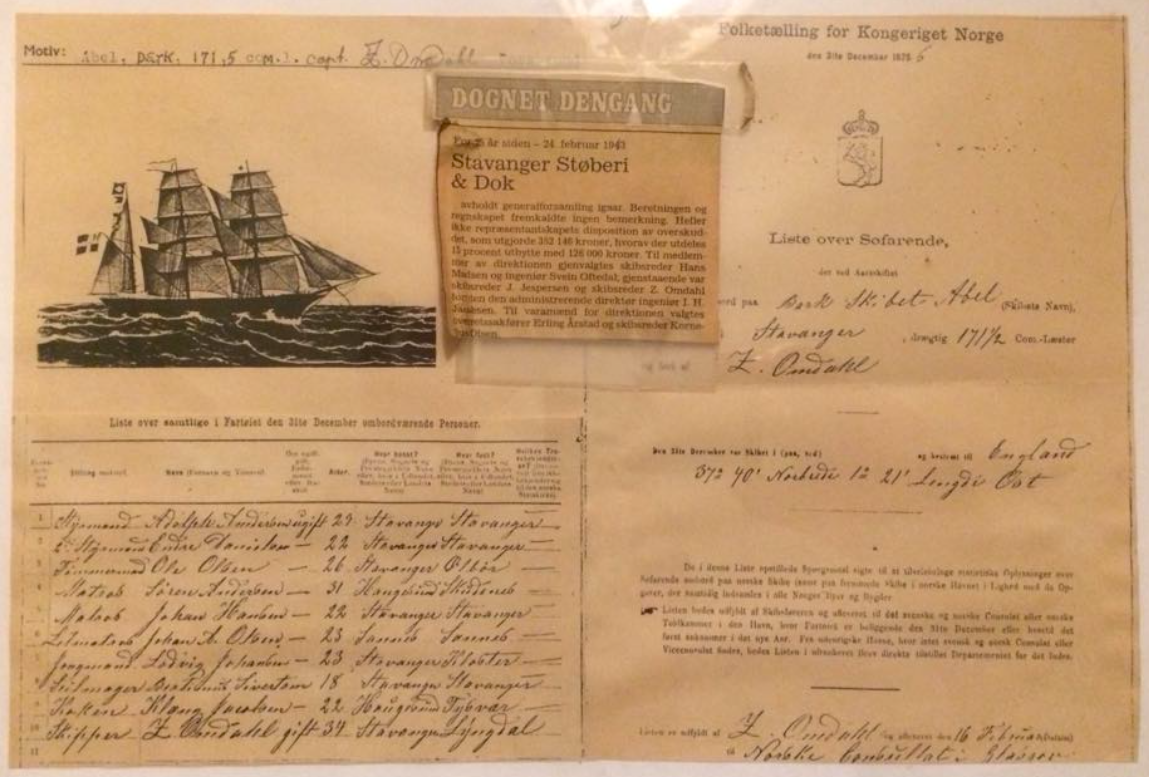 Motiv: Abel, bark. 171,5 com.l. capt. Z. Omdahl
DØGNET DENGANG
For år siden - 24. februar 1943
Stavanger Støberi
& Dok
avholdt generalforsamling igaar. Beretningen og
regnskapet fremkaldte ingen bemerkning. Heller
ikke repræsentantskapets disposition av overskud-
det, som utgjorde 352 146 kroner, hvorav der utdeles
15 procent utbytte med 126 000 kroner. Til medlem-
mer av direktionen gjenvalgtes skibsreder Hans
Matsen og ingeniør Svein Oftedal, gjenstaaende var
skibsreder J. Jespersen og skibsreder Z. Omdahl
foruten den administrerende direktør ingeniør I. H.
Jacobsen. Til varamænd for direktionen valgtes
overretssakfører Erling Årstad og skibsreder Korne-
lius Olsen.
Folketælling for Kongeriget Norge
den 31te December 1875 6
Liste over Søfarende,
der ved Aarsskiftet
ombord paa Bark Skibet Abel (Skibets Navn),
Stavanger, drægtig 171½ Com.-Læster
Z. Omdahl
Den 31te December var Skibet i (paa, ved) og bestemt til England
37° 40' Norbrede 1° 21' Lengde Ost
De i denne Liste opstillede Spørgsmaal sigte til at tilveiebringe statistiske Oplysninger over
Søfarende ombord paa norske Skibe (samt paa fremmede Skibe i norske Havne) i Lighed med de Op-
gaver, der samtidig indsamles i alle Norges Byer og Bygder.
Listen bedes udfyldt af Skibsføreren og afleveret til det svenske og norske Consulat eller norske
Toldkammer i den Havn, hvor Fartøiet er beliggende den 31te December eller hvortil det
først ankommer i det nye Aar. Fra udenrigske Havne, hvor intet svensk og norsk Consulat eller
Viceconsulat findes, bedes Listen i ufrankeret Brev direkte tilstillet Departementet for det Indre.
Listen er udfyldt af Z. Omdahl og afleveret den 16 Februar (Datum)
til Norske Consullat i Glasgow
Liste over samtlige i Fartøiet den 31te December ombordværende Personer.
Stilling ombord. Navn (Fornavn og Tilnavn). Alder. Hvor bosat? Hvor født?
1 Styrmand Adolph Andersen ugift 29 Stavanger Stavanger
2. Styrmand Endre Danielsen — 22 Stavanger Stavanger
3 Tømmermand Ole Olsen — 26 Stavanger Ølbør
4 Matros Søren Andersen — 31 Haugesund Skudenes
5 Matros Johan Hansen — 22 Stavanger Stavanger
Letmatros Johan A. Olsen — 23 Sannes Sannes
Jungmand Lodvig Johansen — 23 Stavanger Kloster
Seilmager Sivertsen 18 Stavanger Stavanger
Kokken Jacobsen — 22 Haugesund Tysvær
10 Skipper Z. Omdahl gift 34 Stavanger Lyngdal
11